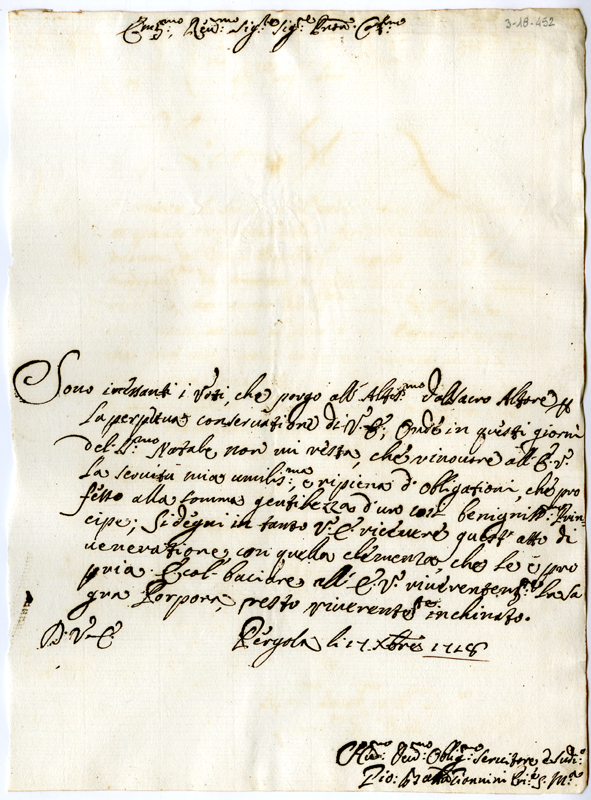 3-18-452
Em.mo, Rev.mo Sig.re Sig.re Pron. Col.mo
Sono incessanti i Voti, che porgo all'Altis.mo dal Sacro Altare p
la perpetua conservatione di V. E., onde in questi giorni
del S.mo Natale non mi resta, che rinovare all'E. V.
la servitù mia umilis.ma, e ripiena d'obligationi, che pro
fetto alla somma gentilezza d'uno così benigniss.mo Prin
cipe; si degni in tanto V. E. ricevere quest'atto di
veneratione con quella clemenza, che le è pro
pria. E col baciare all'E. V. riverentem.te la Sa
gra Porpora, resto riverentem.te inchinato.
D. V. E.
Pergola li 17 Xbre 1718
Hu.mo Dev.mo Oblig.mo Servitore
Gio: Batta Giannini